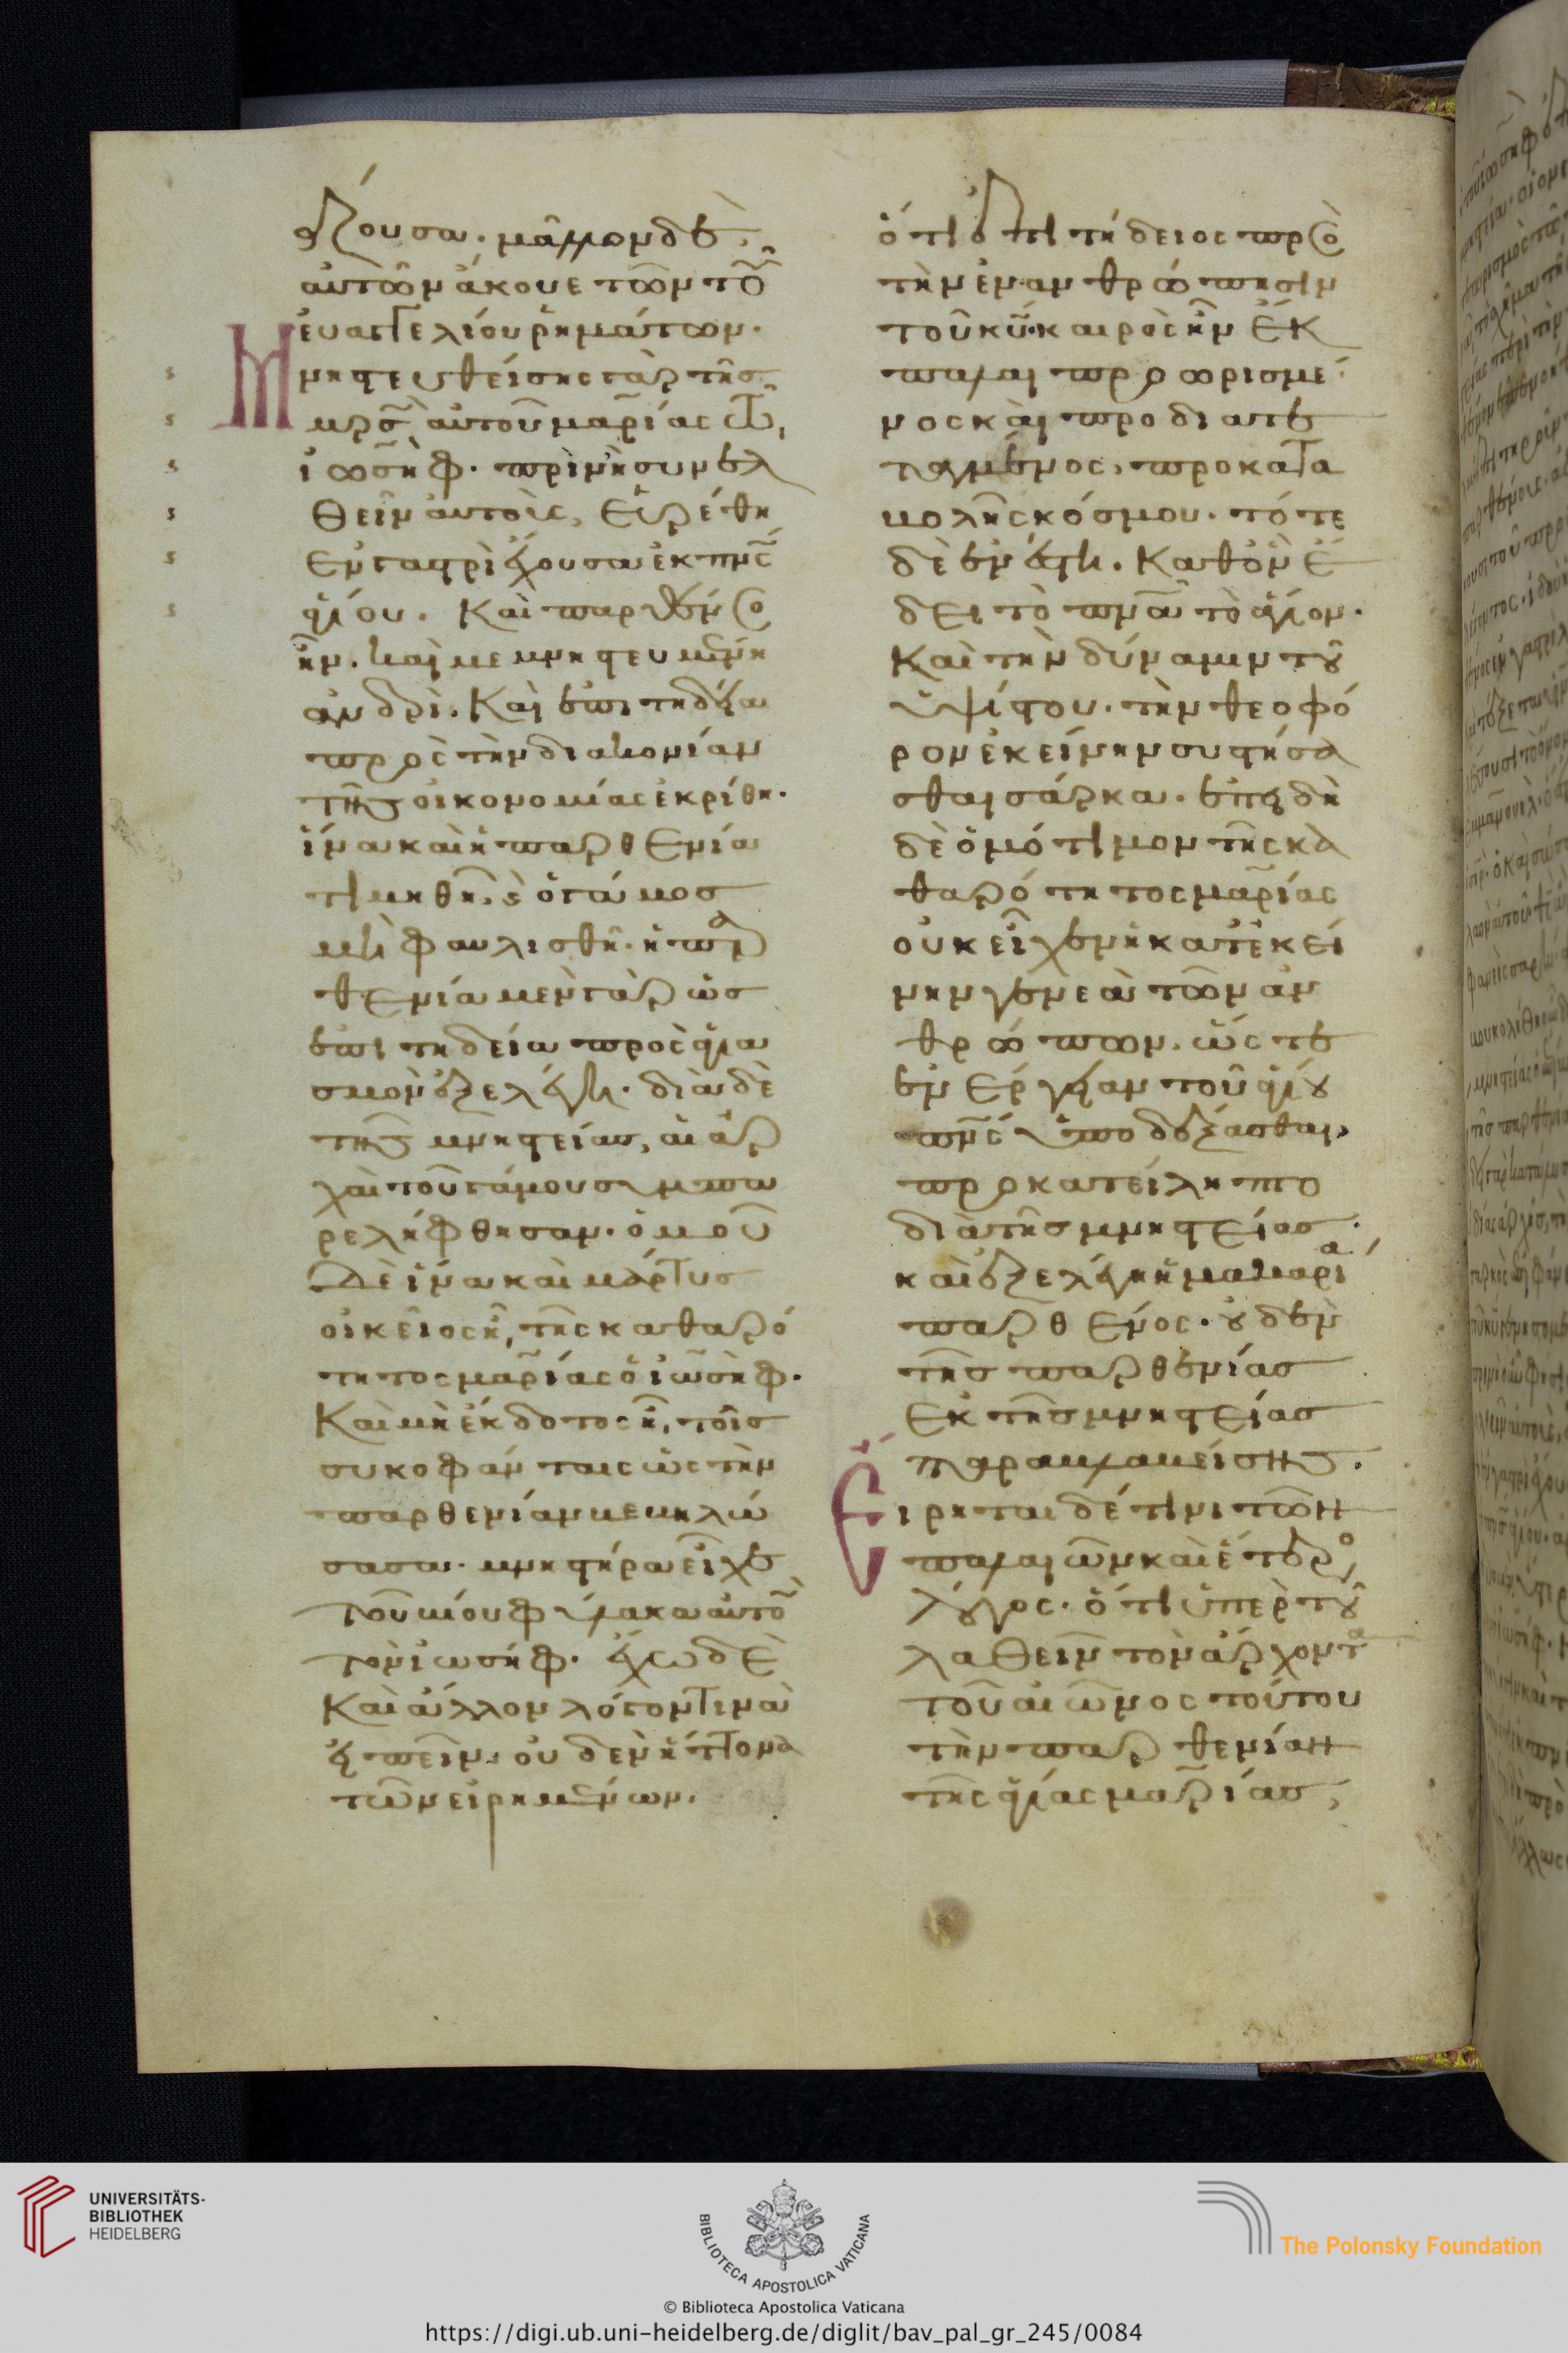 εζουσα. μᾶλλον δὲ
αὐτῶν ἄκουε τῶν τοῦ
εὐαγγελίου ῥημάτων.
Μνηστευθείσης γὰρ τῆς
μρσ αὐτοῦ μαρίας τῶ
ἰωσήφ. πρὶν ἢ συνελ
θεῖν αὐτοὺς, εὑρέθη
ἐν γαστρὶ ἔχουσα ἐκ πνς
ἁγίου. Καὶ παρθένος
ἦν. καὶ μεμνηστευμένη
ἀνδρί. Καὶ ἐπιτηδεία
πρὸς τὴν διακονίαν
τῆς οἰκονομίας ἐκρίθη.
ἵνα καὶ ἡ παρθενία
τιμηθῆ. ς ὁ γάμος
μὴ φαυλισθῆ. ἡ παρ
θενία μὲν γὰρ ὡς
ἐπιτηδεία πρὸς ἁγια
σμὸν ἐξελέγη. διὰ δὲ
τῆς μνηστείας, αἱ ἀρ
χαὶ τοῦ γάμου συμπα
ρελήφθησαν. ὁμοῦ
δὲ ἵνα καὶ μάρτυς
οἰκεῖος ῆ, τῆς καθαρό
τητος μαρίας ὁ ἰωσὴφ.
Καὶ μὴ ἔκδοτος ῆ, τοῖς
συκοφάνταις ὡς τὴν
παρθενίαν κεκηλώ
σασα. μνηστῆρα εἶχε
τοῦ βίου φύλακα αὐτοῦ
τὸν ἰωσήφ. ἔχω δὲ
Καὶ ἄλλον λόγον τινὰ
εἰπεῖν. οὐδὲν ἥττονα
τῶν εἰρημένων.
ὅτι ὁ ἐπιτήδειος πρὸς
τὴν ἐνανθρώπησιν
τοῦ κυ. καιρὸς ἦν ἐκ
πάλαι προωρισμέ
νος καὶ προδιατε
ταγμένος, πρὸ κατα
βολῆς κόσμου. τότε
δὲ ἐνέστη. Καθ' ὃν ἔ
δει τὸ πνα τὸ ἅγιον.
Καὶ τὴν δύναμιν τοῦ
ὑψίστου. τὴν θεοφό
ρον ἐκείνην συστήσα
σθαι σάρκα. ἐπειδὴ
δὲ ὁμότιμον τῆς κα
θαρότητος μαρίας
οὐκ εἶχεν ἡ κατ' ἐκεί
νην γενεὰ τῶν ἀν
θρώπων. ὥστε
ἐνέργειαν τοῦ ἁγίου
πνς ὑποδέξασθαι,
προκατείληπτο
διὰ τῆς μνηστείας.
καὶ ἐξελέγη ἡ μακαρία
παρθένος. οὐδὲν
τῆς παρθενίας
ἐκ τῆς μνηστείας
παραβλαβείσης.
Εἴρηται δέ τινι τῶν
παλαιῶν καὶ ἕτερος
λόγος. ὅτι ὑπὲρ τοῦ
λαθεῖν τὸν ἄρχοντα
τοῦ αἰῶνος τούτου
τὴν παρθενίαν
τῆς ἁγίας μαρίας,
UNIVERSITÄTS-
BIBLIOTHEK
HEIDELBERG
BIBLIOTECA APOSTOLICA VATICANA
The Polonsky Foundation
© Biblioteca Apostolica Vaticana
https://digi.ub.uni-heidelberg.de/diglit/bav_pal_gr_245/0084